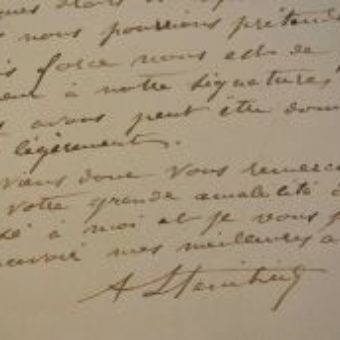 nous pourrions prétendre
force nous est de
à notre signature,
avons peut être don
légèrement.
viens donc vous remerc
votre grande amabilité
à moi et je vous p
mes meilleures a
A Steinheil